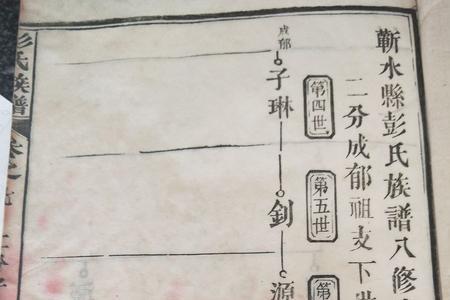 蘄水縣彭氏族譜八修
二分成郁祖支下
第四世
第五世
第
成郁
子琳
釗
源
彭氏族譜
卷之